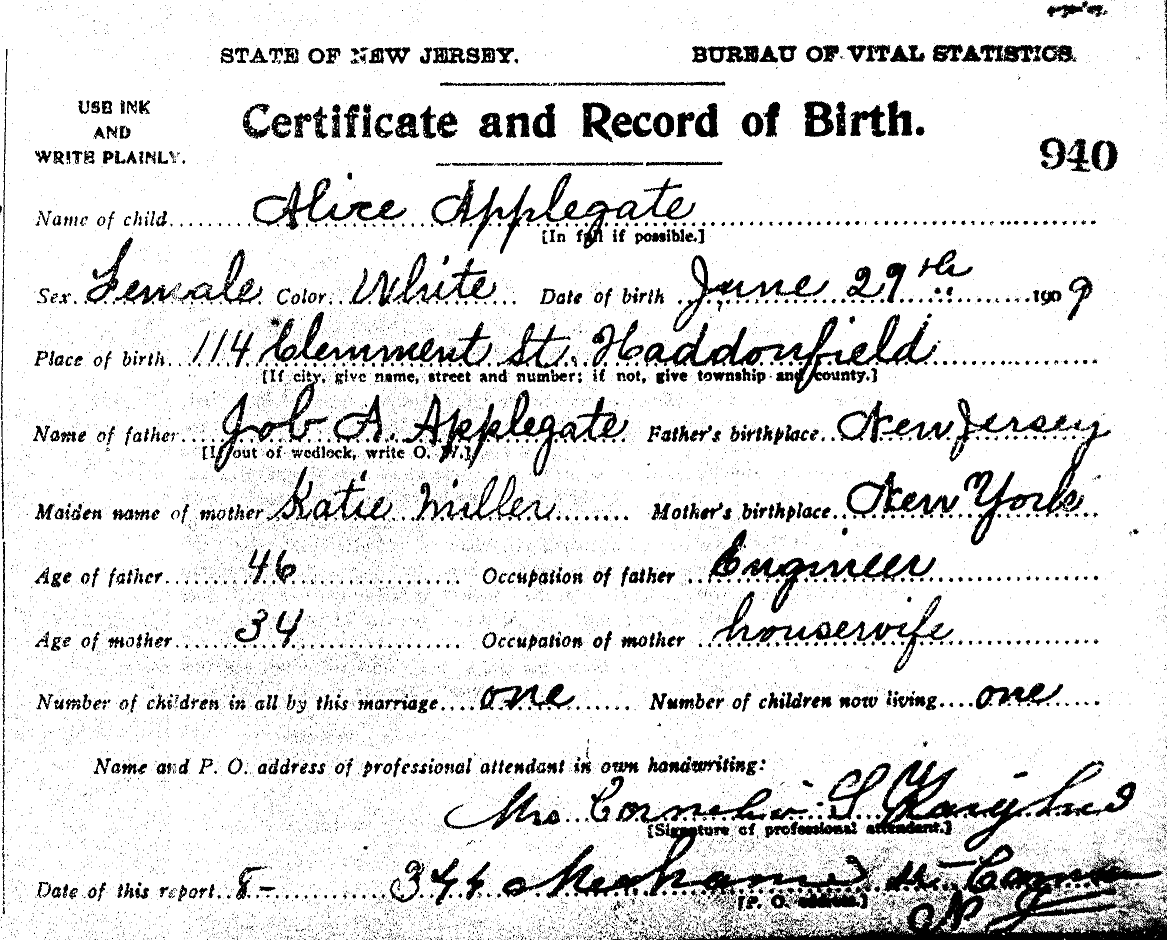 STATE OF NEW JERSEY. BUREAU OF VITAL STATISTICS.
USE INK
AND
WRITE PLAINLY.
Certificate and Record of Birth.
940
Name of child Alice Applegate
[In full if possible.]
Sex. Female Color White Date of birth June 29th 1909
Place of birth 114 Clemment St. Haddonfield
[If city, give name, street and number; if not, give township and county.]
Name of father Job A. Applegate Father's birthplace New Jersey
[If out of wedlock, write O. W.]
Maiden name of mother Katie Miller Mother's birthplace New York
Age of father 46 Occupation of father Engineer
Age of mother 34 Occupation of mother housewife
Number of children in all by this marriage one Number of children now living one
Name and P. O. address of professional attendant in own handwriting:
Mrs Cornelia S
[Signature of professional attendant.]
Date of this report 8- 344 St
[P. O. address.]
N J